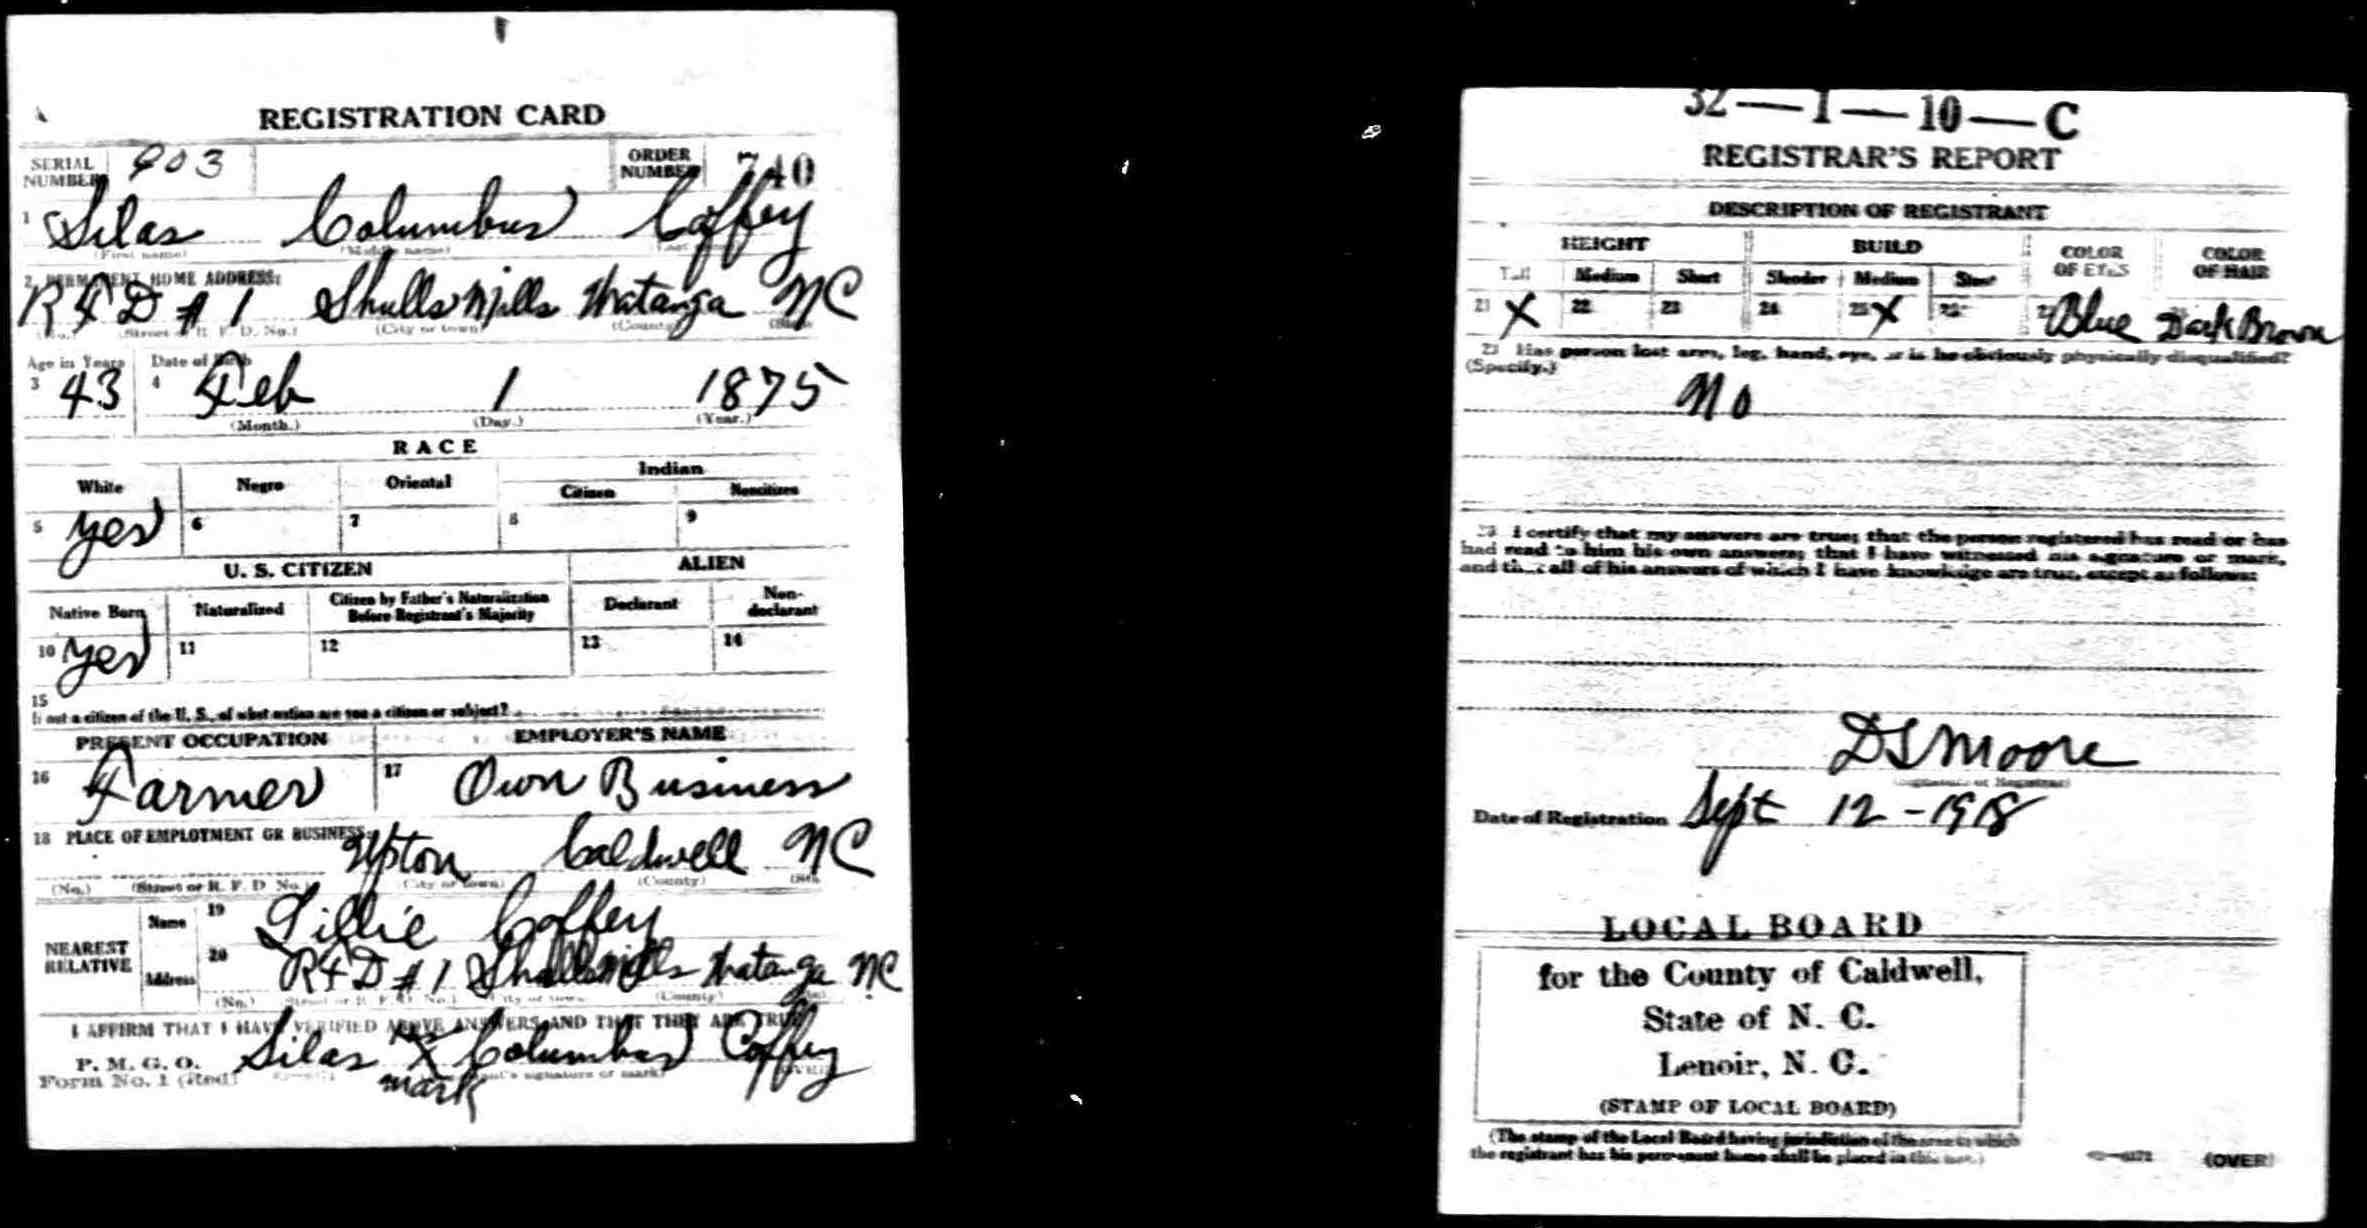 REGISTRATION CARD
SERIAL NUMBER 903 ORDER NUMBER 740
1 Silas Columbus Coffey
(First name) (Middle name)
2 PERMANENT HOME ADDRESS:
R F D # 1 Shulls Mills Watauga NC
(No.) (Street or R. F. D. No.) (City or town) (County) (State)
Age in Years Date of Birth
3 43 4 Feb 1 1875
(Month.) (Day.) (Year.)
RACE
White Negro Oriental Indian
Citizen Noncitizen
5 yes 6 7 8 9
U. S. CITIZEN ALIEN
Native Born Naturalized Citizen by Father's Naturalization Before Registrant's Majority Declarant Non-declarant
10 yes 11 12 13 14
15
If not a citizen of the U. S., of what nation are you a citizen or subject?
PRESENT OCCUPATION EMPLOYER'S NAME
16 Farmer 17 Own Business
18 PLACE OF EMPLOYMENT OR BUSINESS:
Upton Caldwell NC
(No.) (Street or R. F. D. No.) (City or town) (County) (State)
NEAREST RELATIVE Name 19 Lillie Coffey
Address 20 R F D # 1 Shulls Mills Watauga NC
(No.) (Street or R. F. D. No.) (City or town) (County)
I AFFIRM THAT I HAVE VERIFIED ABOVE ANSWERS AND THAT THEY ARE TRUE
P. M. G. O.
Form No. 1 (Red) Silas his X mark Columbus Coffey
(Registrant's signature or mark) (OVER)
32—1—10—C
REGISTRAR'S REPORT
DESCRIPTION OF REGISTRANT
HEIGHT BUILD COLOR OF EYES COLOR OF HAIR
Tall Medium Short Slender Medium Stout
21 X 22 23 24 25 X 26 27 Blue Dark Brown
Has person lost arm, leg, hand, eye, or is he obviously physically disqualified?
(Specify.)
No
I certify that my answers are true; that the person registered has read or has
had read to him his own answers; that I have witnessed his signature or mark,
and that all of his answers of which I have knowledge are true, except as follows:
D S Moore
(Signature of Registrar)
Date of Registration Sept 12 - 1918
LOCAL BOARD
for the County of Caldwell,
State of N. C.
Lenoir, N. C.
(STAMP OF LOCAL BOARD)
(The stamp of the Local Board having jurisdiction of the area in which
the registrant has his permanent home shall be placed in this box.)
(OVER)